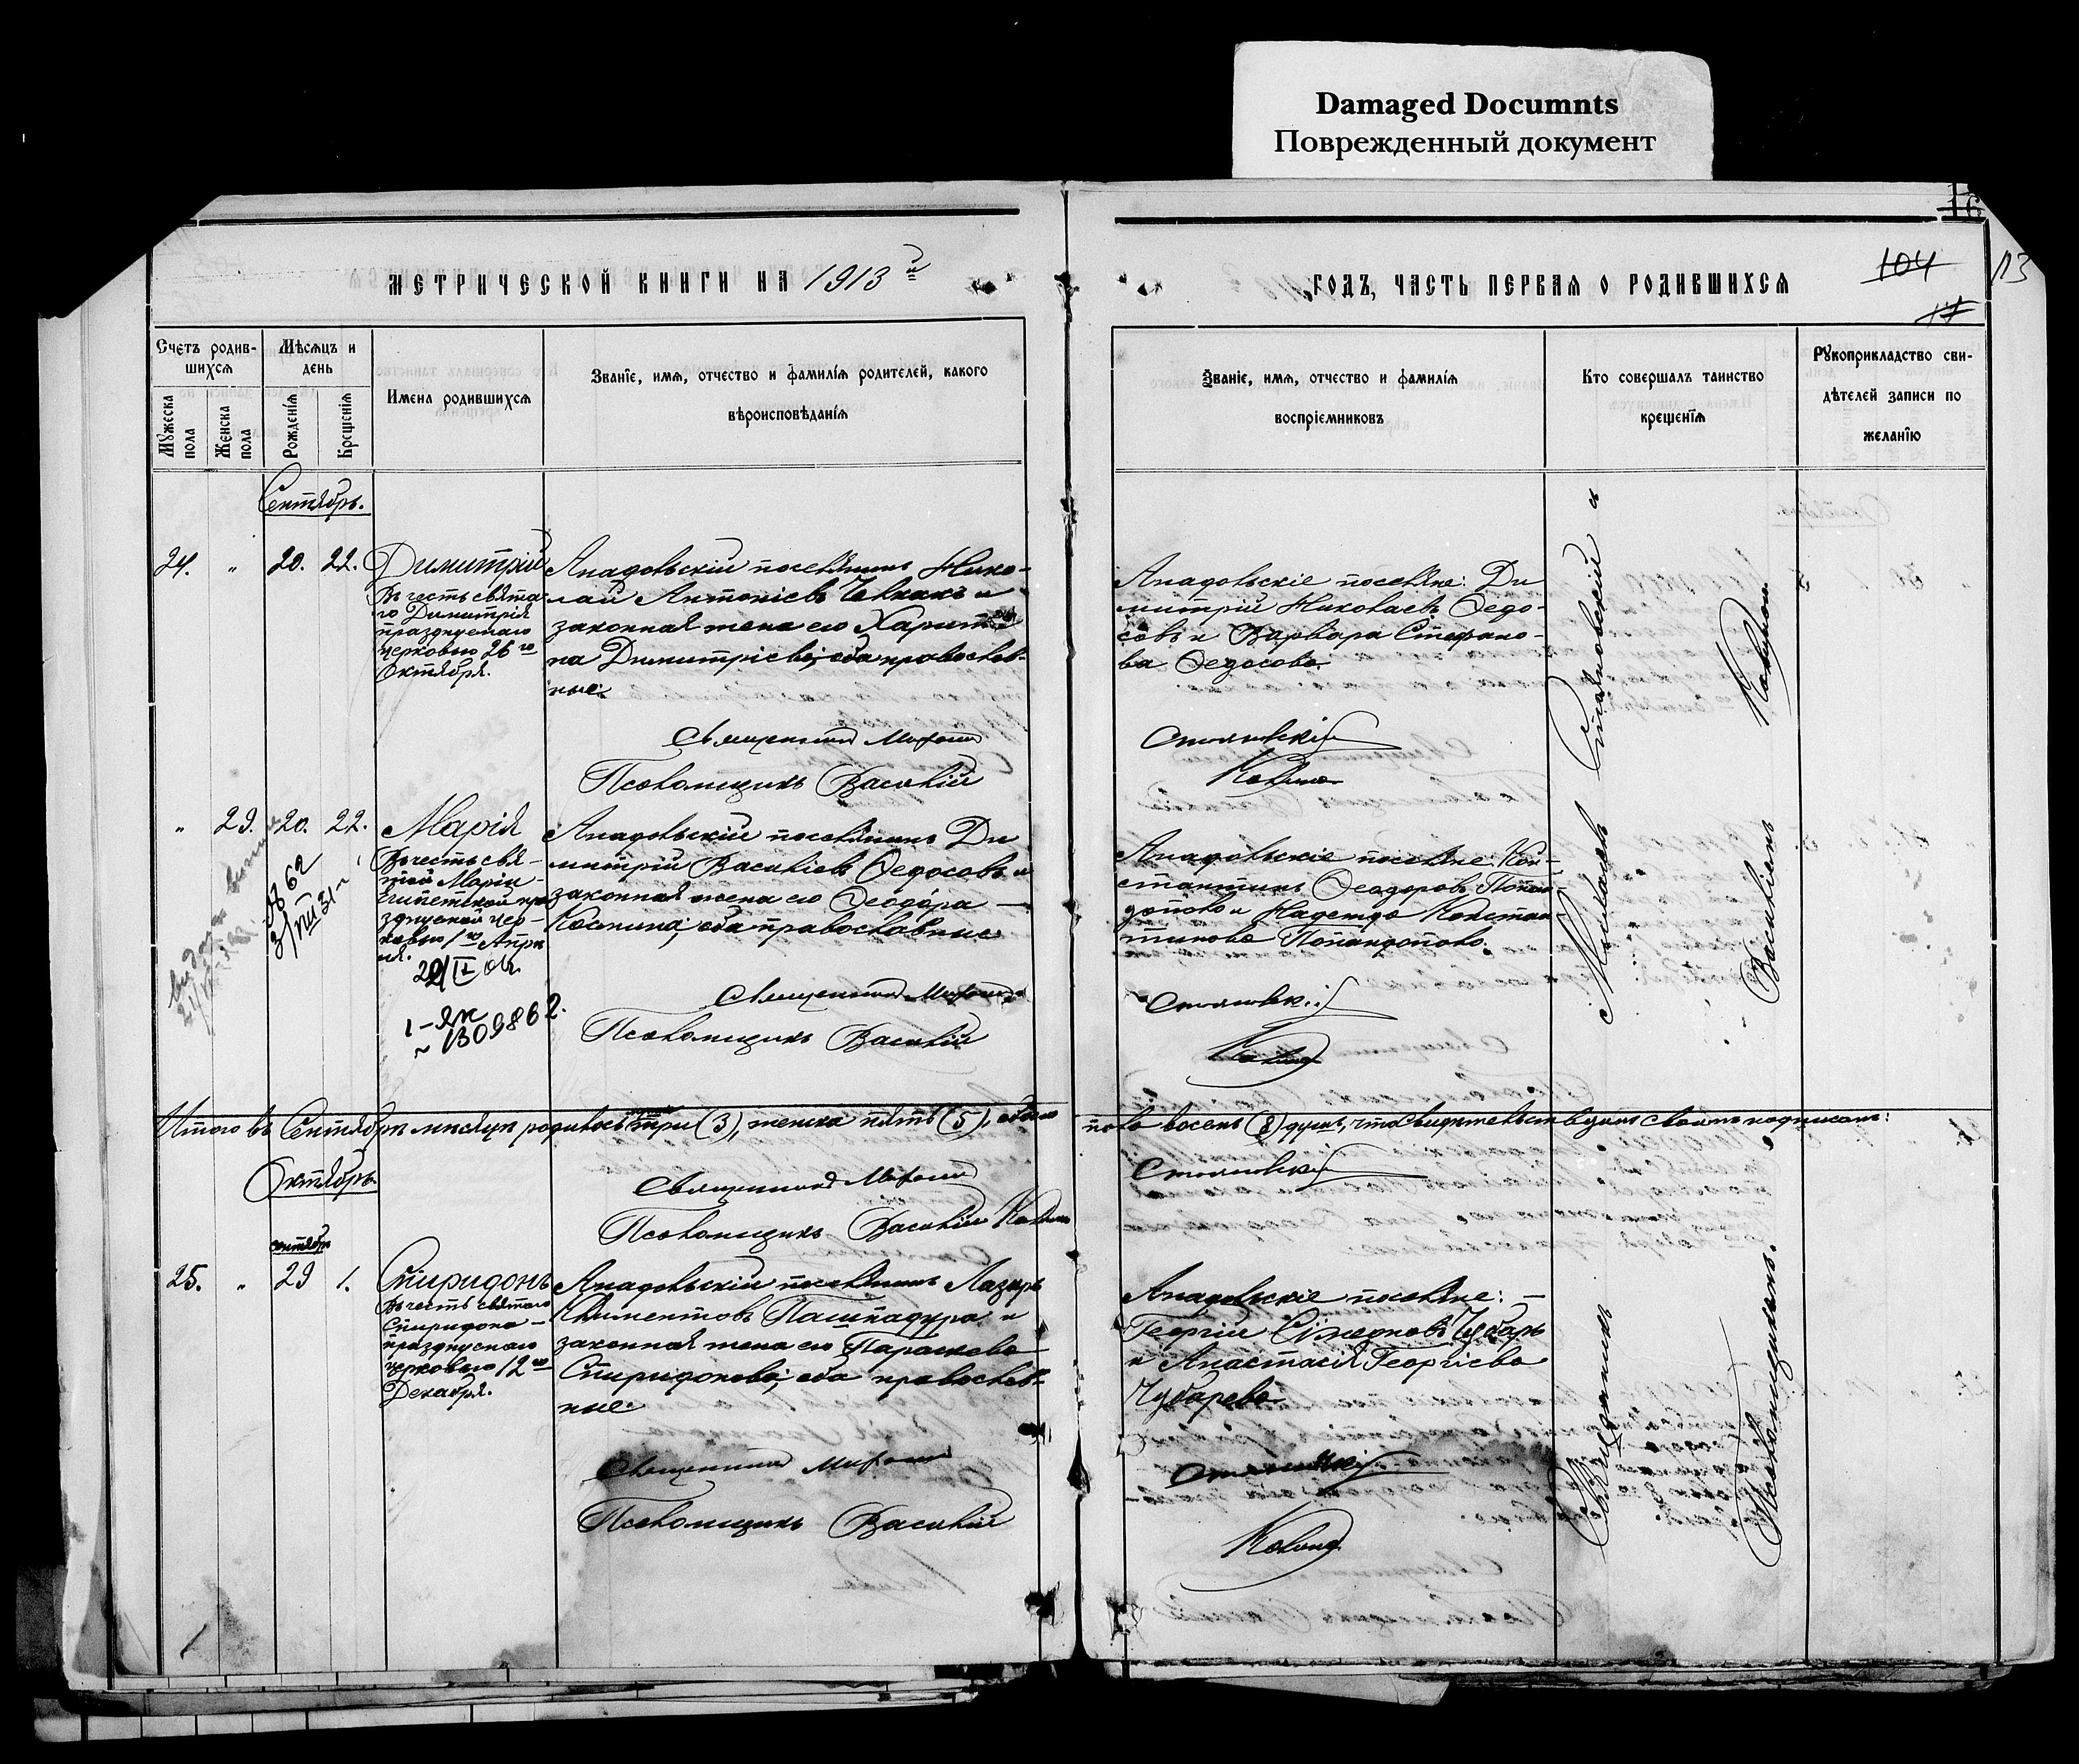 Damaged Documnts
Поврежденный документ
16
МЕТРИЧЕСКОЙ КНИГИ НА 1913 й
ГОДЪ, ЧАСТЬ ПЕРВАЯ О РОДИВШИХСЯ
104
113
17
Счетъ родив-
шихся
Мѣсяцъ и
день
Мужеска
пола
Женска
пола
Рожденія
Крещенія
Имена родившихся
Званіе, имя, отчество и фамилія родителей, какого
вѣроисповѣданія
Званіе, имя, отчество и фамилія
воспріемниковъ
Кто совершалъ таинство
крещенія
Рукоприкладство сви-
дѣтелей записи по
желанію
Сентябрь.
24. " 20. 22. Димитрій
Въ честь свята-
го Димитрія
празднуемаго
церковью 26 го
Октября.
Анадольскій поселянинъ Нико-
лай Антоніевъ Челпакъ и
законная жена его Харити-
на Димитріева, оба православ-
ные.
Священникъ Михаил
Псаломщикъ Василій
Анадольскіе поселяне: Ди
митрій Николаевъ Федо-
совъ и Варвара Стефано-
ва Федосова.
Стояновскій
" 29. 20. 22. Марія
Въ честь свя-
той Маріи
Египетской пра
зднуемой цер-
ковью 1 го Апрѣ
ля.
Анадольскій поселянинъ Ди
митрій Василіевъ Федосовъ и
законная жена его Феодора
Космина, оба православные.
Священникъ Михаил
Псаломщикъ Василій
Анадольскіе поселяне: Кон-
стантинъ Феодоровъ Попан-
допово и Надежда Констан-
тинова Попандопово.
Стояновскій
Священникъ Михаилъ Стояновскій и
Псаломщикъ Василій
Итого въ Сентябрѣ мѣсяцѣ родилось три (3), женска пять (5), обоего
пола восемь (8) душъ, что свидѣтельствуемъ своимъ подписомъ:
Октябрь.
Священникъ Михаил
Псаломщикъ Василій
Стояновскій
сентябрь
25. " 29 1. Спиридонъ
Въ честь святаго
Спиридона
празднуемаго
церковью 12 го
Декабря.
Анадольскій поселянинъ Лазарь
Климентовъ Пашпадура и
законная жена его Параскева
Спиридонова, оба православ-
ные.
Священникъ Михаил
Псаломщикъ Василій
Анадольскіе поселяне:
Георгій Симеоновъ Чубарь
и Анастасія Георгіева
Чубарева.
Стояновскій